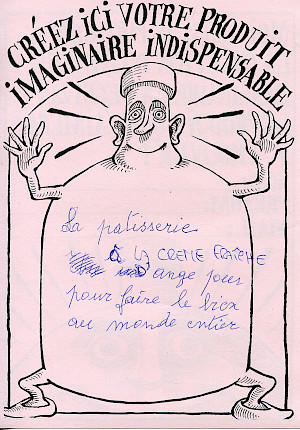 CRÉEZ ICI VOTRE PRODUIT
IMAGINAIRE INDISPENSABLE
La patisserie
à LA CREME FRAÎCHE
ange pour
pour faire le bien
au monde entier